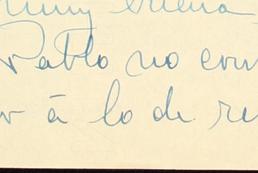 muy buena
Pablo no con
r á lo de re